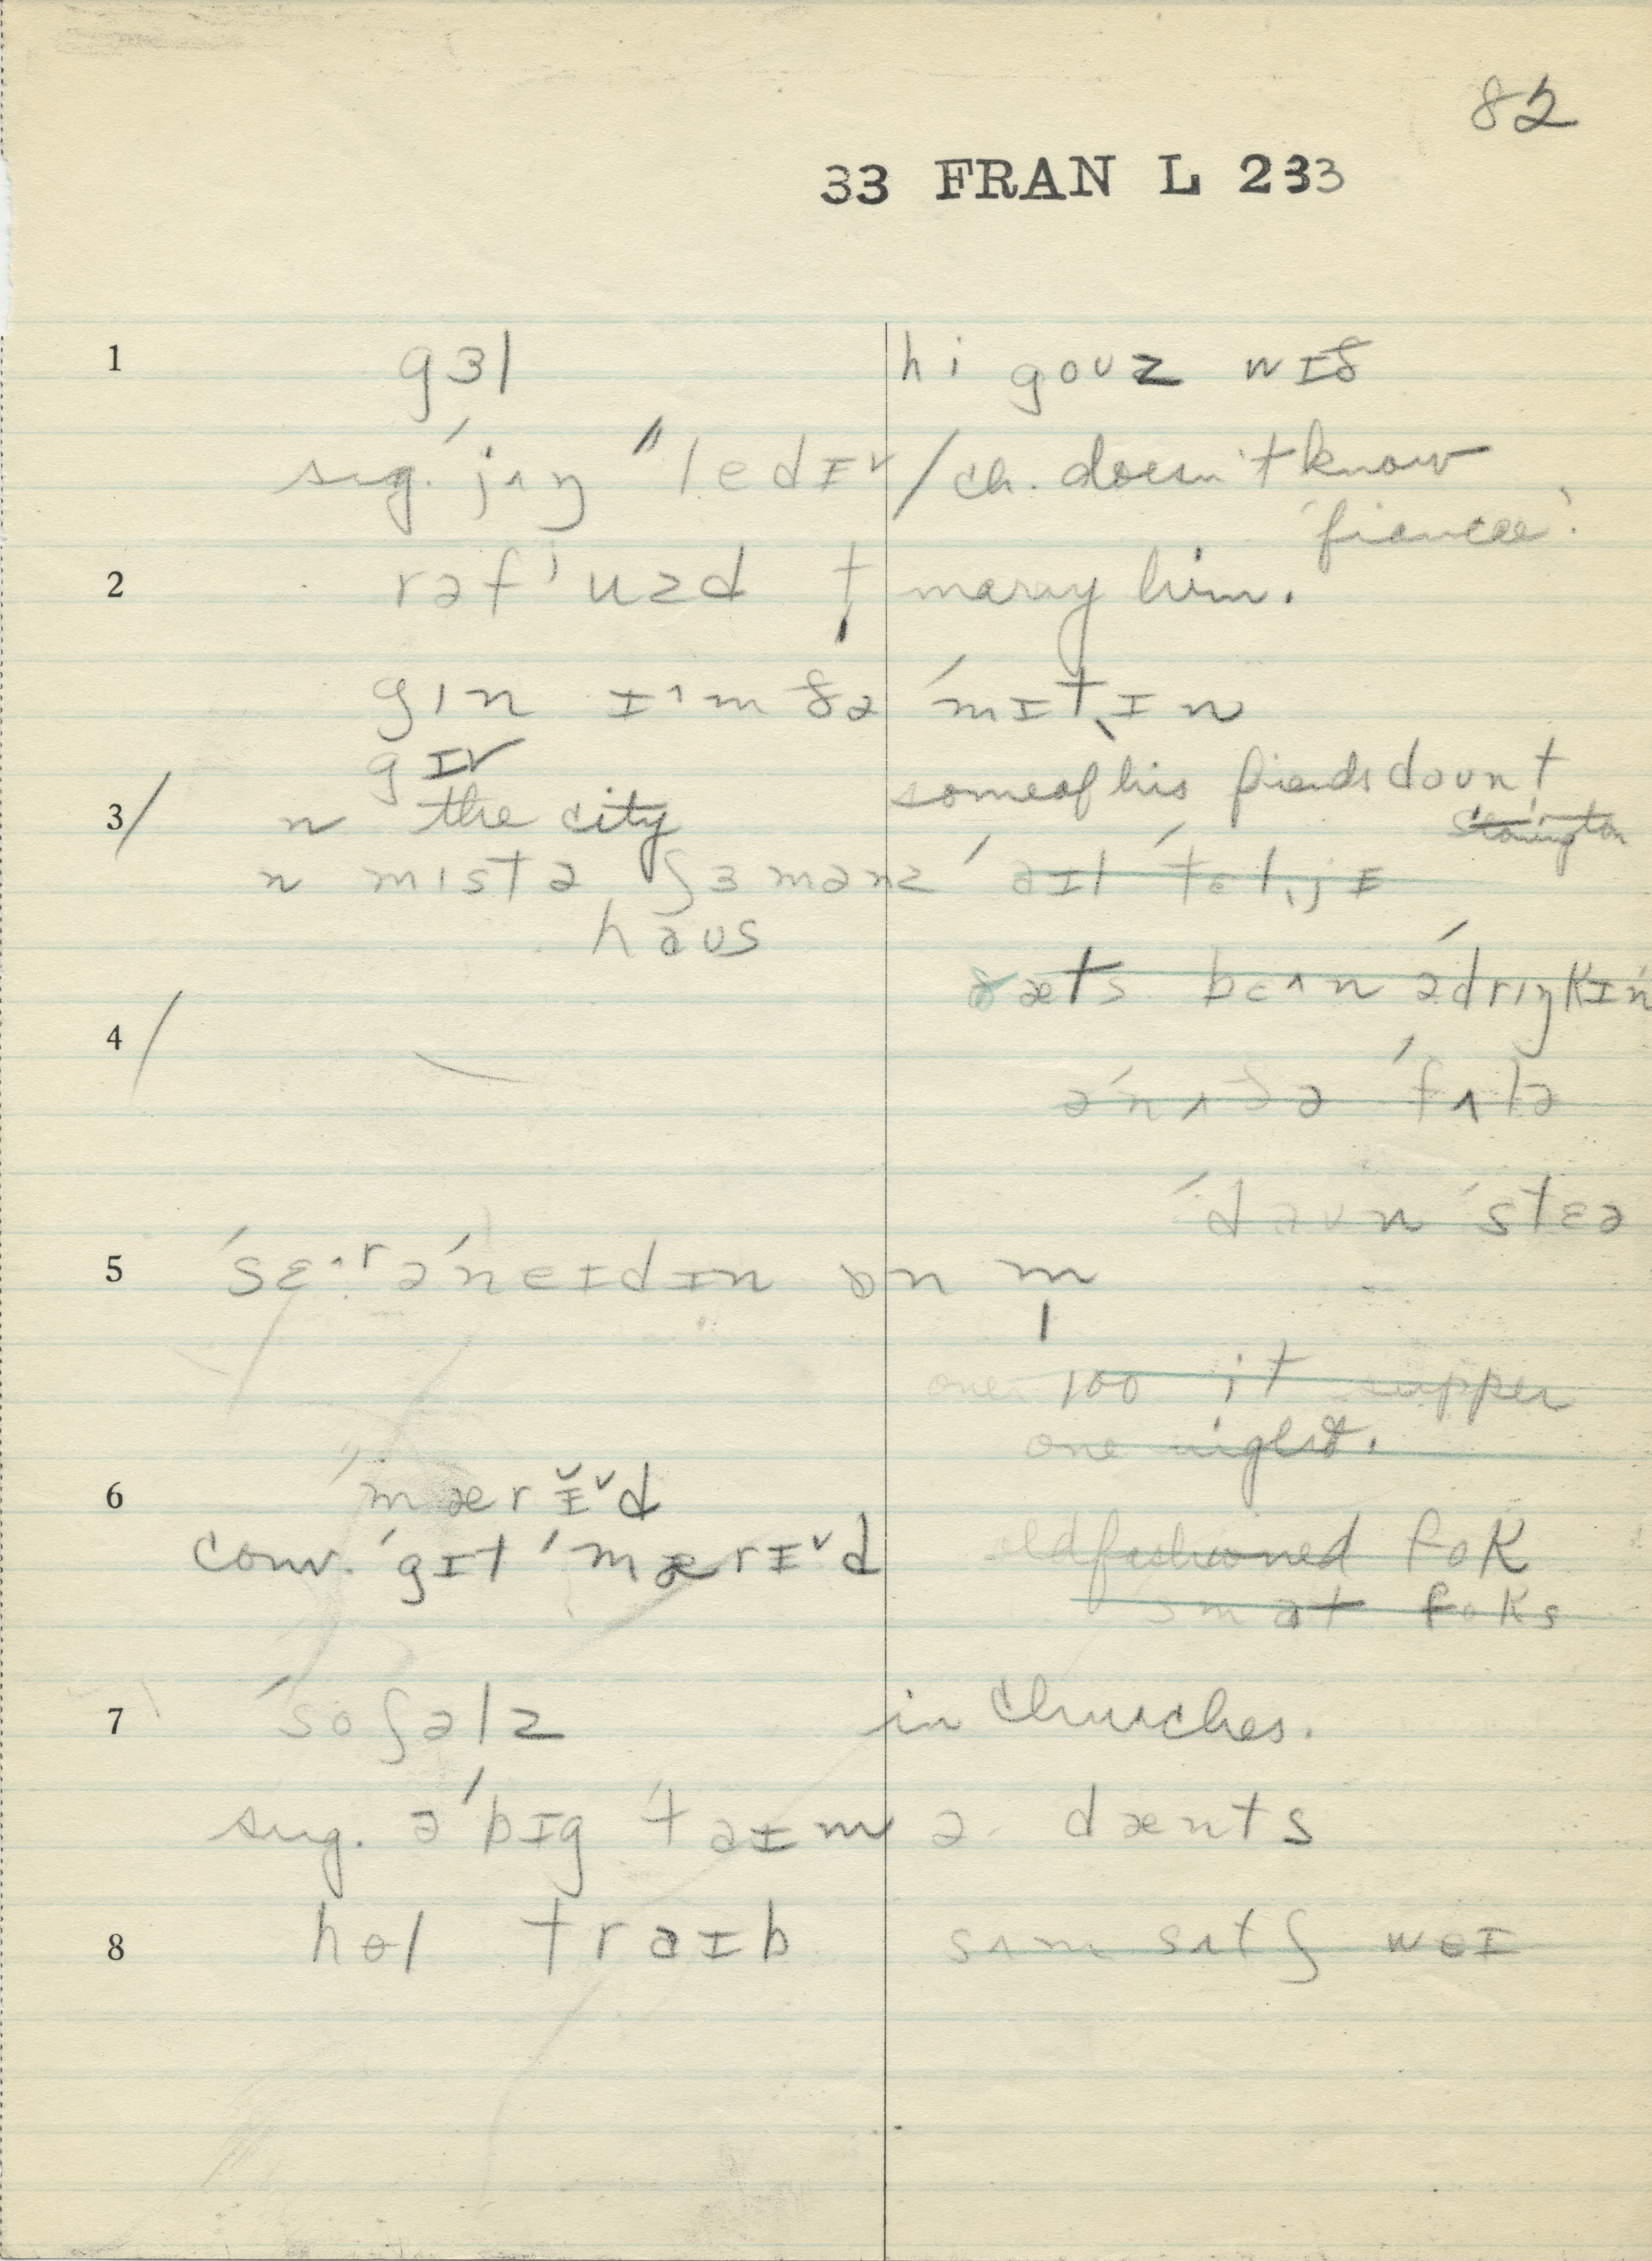 82
33 FRAN L 233
1 gɜl hi gouz wɪð
sug. ˈjʌŋ ˈˈledɪ˅ / ch. doesn't know
'fiancee'.
2 rəfˈuzd t̩ marry him.
gɪn ɪ^m ðə ˈmɪt̩ɪn
gɪv some of his friends dount
3/ n the city
n mɪstə ʃɜmənz ˈəɪl ˈtɛl̩jɛ
haus
ðæts bɛ^n əˈdrɪŋkɪn
4/
əˈnʌðə ˈfʌlə
ˈdaun ˈstɛə
5 ˈsɛ^rəˈneɪdɪn ɒn m̩
over 100 it supper
one night.
6 ˈmærɪ̆˅d
conv. ˈgɪt ˈmærɪ˅d oldfashioned fok
smat foks
7 ˈsoʃəlz in churches.
sug. əˈbɪg ˈtaɪm ə dænts
8 hɵl traɪb sʌm sʌtʃ weɪ